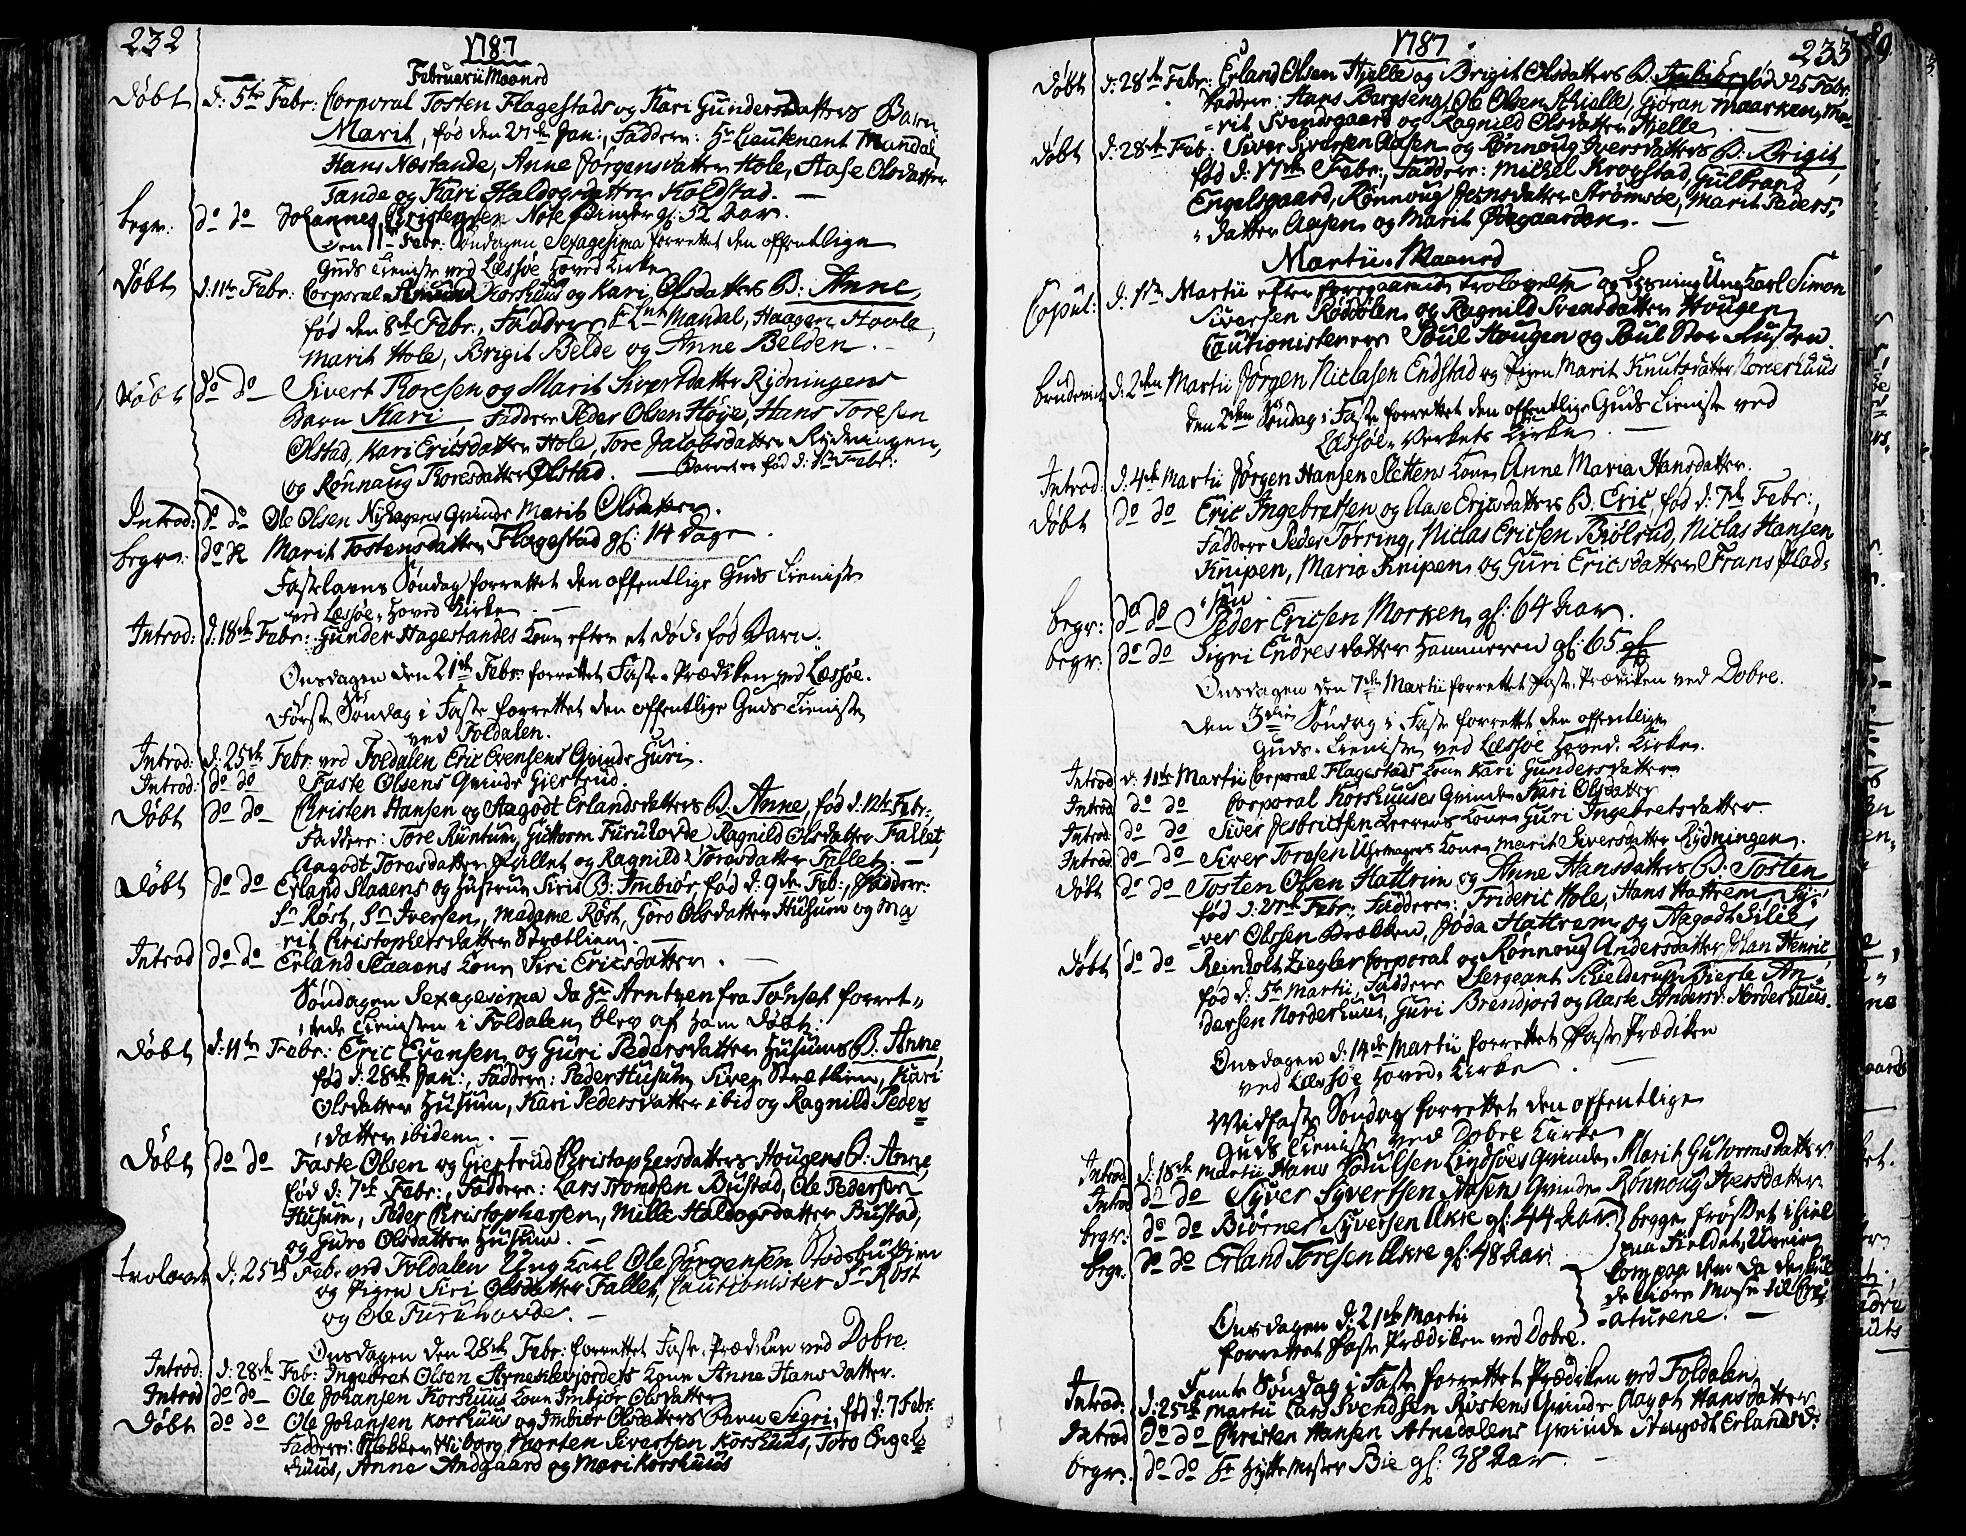 232
1787
Februarii Maaned
Døbt d: 5te Febr: Corporal Tosten Flagestads og Kari Gundersdatters Barn
Marit, fød den 27de Jan:, Faddere: Hr Lieutenant Mandal,
Hans Næstande, Anne Jørgensdatter Hole, Aase Olsdatter
Tande og Kari Haldogsdatter Kaldstad. —
begr: do do Johannes Christensen Note Binder gl: 52 Aar.
den 11te Febr: Søndagen Sexagesima forrettet den offentlige
Guds Tieniste ved Læssøe Hoved Kirke
Døbt d: 11te Febr: Corporal Amund Korshuus og Kari Olsdatters B: Anne,
fød den 8de Febr:, Faddere Hr Lnt Mandal, Haagen Hoole,
Marit Hole, Brigit Belde og Anne Belden. —
Døbt do do Sivert Thoresen og Marit Sivertdatter Rydningens
Barn Kari, Faddere Peder Olsen Høye, Hans Toresen
Olstad, Kari Ericsdatter Hole, Tore Jacobsdatter Rydningen,
og Rønnaug Thoresdatter Olstad. — Barnet er fød d: 1te Febr:
Introd: do do Ole Olsen Nyhagens Qvinde Marit Olsdatter.
begr: do Marit Tostensdatter Flagestad gl: 14 Dage.
Fastelavns Søndag forrettet den offentlige Guds Tieniste
ved Læssøe Hoved Kirke. —
Introd: d: 18de Febr: Gunder Hagestandes Kone efter et død-fød Barn.
Onsdagen den 21de Febr: forrettet Faste-Prædiken ved Læssøe.
Første Søndag i Faste forrettet den offentlige Guds Tieniste
ved Foldalen.
Introd: d: 25de Febr: ved Foldalen Eric Evensens Qvinde Guri.
Introd: do do Faste Olsens Qvinde Giertrud.
Døbt do do Christen Hansen og Aagodt Erlandsdatters B: Anne, fød d: 12te Febr:,
Faddere: Tore Runtum, Guttorm Furuhovde, Ragnild Olsdatter Fallet,
Aagodt Toresdatter Fallet og Ragnild Toresdatter Fallet. —
Døbt do do Erland Slaaens og Hustrue Siris B: Imbiør, fød d: 9de Feb:, Faddere:
Sr Røst, Sr Iversen, Madame Røst, Goro Olsdatter Husum og Ma
rit Christophersdatter Strætlien.
Introd do do Erland Slaaens Kone Siri Ericsdatter. —
Søndagen Sexagesima da Hr Arntzen fra Tønset forret-
tede Tienisten i Foldalen, blev af ham døbt:
Døbt d: 11te Febr: Eric Evensen og Guri Pedersdatter Husums B: Anne,
fød d: 28de Jan:, Faddere: Peder Husum, Siver Strætlien, Kari
Olsdatter Husum, Kari Pedersdatter ibid og Ragnild Peders
datter ibidem. —
Døbt do do Faste Olsen og Giertrud Christophersdatters Hougens B: Anne,
fød d: 7de Febr:, Faddere: Lars Trondsen Bustad, Ole Pedersen
Husum, Peder Christophersen, Mille Haldogsdatter Bustad,
og Guro Olsdatter Husum. —
Trolovet d: 25de Feb: ved Foldalen Ung Karl Ole Jørgensen Stodsbudien
og Pigen Siri Olsdatter Fallet, Cautionister Sr Røst
og Ole Furuhovde. —
Onsdagen den 28de Febr: forrettet Faste-Prædiken ved Dobre.
Introd: d: 28de Feb: Ingebret Olsen Arneklevjordets Kone Anne Hansdatter.
Introd do do Ole Johansen Korshuus Kone Imbiør Olsdatter
Døbt do do Ole Johansen Korshuus og Imbiør Olsdatters Barn Sigri, fød d: 7 Febr:
Faddere: Klokker Wiborg, Morten Sivertsen Korshuus, Toro Engels
huus, Anne Andgaard og Mari Korshuus
233
1787
Døbt d: 28de Febr: Erland Olsen Hjelle og Brigit Olsdatters B: Imbiør fød d 25 Febr:
Faddere: Hans Bergseng, Ole Olsen Schielle, Gjøran Maarken, Ma-
rit Svendsgaard og Ragnild Olsdatter Hjelle
Døbt d: 28de Feb: Siver Siversen Aasen og Rønnoug Iversdatters B: Brigit,
fød d: 17de Febr:, Faddere: Michel Krogstad, Gulbrand
Engelsgaard, Rønnoug Jensdatter Strømsøe, Marit Peders,
datter Aasen og Marit Ødegaarden. —
Martii Maaned
Copul: d: 1te Martii efter foregaaende Trolovelse og Lysning Ung Karl Simon
Siversen Røddølen og Ragnild Svendsdatter Hougen
Cautionisterer Poul Hougen og Poul Stor Musten.
Brudeviet d: 2den Martii Jørgen Niclasen Endstad og Pigen Marit Knutsdatter Norderhuus
den 2den Søndag i Faste forrettet den offentlige Guds Tieniste ved
Læssøe-Verkets Kirke. —
Introd: d: 4de Martii Jørgen Hansen Slettens Kone Anne Maria Hansdatter.
Døbt do do Eric Ingebretsen og Aase Ericsdatters B: Eric, fød d: 7de Febr:,
Faddere Peder Tørring, Niclas Ericsen Biølrud, Niclas Hansen
Knipen, Maria Knipen og Guri Ericsdatter Frans Plad-
sen. —
begr: do do Peder Ericsen Morken, gl: 64 Aar.
begr: do do Sigri Endresdatter Hammeren gl: 65
Onsdagen den 7de Martii forrettet Faste Prædiken ved Dobre.
Den 3die Søndag i Faste forrettet den offentlige
Guds-Tieniste ved Læssøe Hoved-Kirke.
Introd d: 11te Martii Corporal Flagestads Kone Kari Gundersdatter
Introd do do Corporal Korshuuses Qvinde Kari Olsdatter
Introd: do do Siver Jesbritsen Kone Guri Ingebretsdatter
Introd: do do Siver Toresen Uhrmagers Kone Marit Siversdatter Rydningen.
Døbt do do Tosten Olsen Hattrem og Anne Hansdatters B: Tosten
fød d: 27de Febr:, Faddere: Frideric Hole, Hans Hattrem, Sy-
ver Olssen Brækken, Jøda Hattrem og Aagodt Silie
Døbt do do Reinholt Ziegler Corporal og Rønnoug Andersdatter Johan Henric
fød d: 5te Martii, Faddere Sergeant Kielderup, Fierle An-
dersen Norderhuus, Guri Brendjord og Aaste Andersd: Norderhuus.
Onsdagen d: 14de Martii, forrettet Faste Prædiken
ved Læssøe Hoved-Kirke. —
Midfaste Søndag forrettet den offentlige
Guds Tieniste ved Dobre Kirke
Introd d: 18de Martii Hans Poulsen Lindsøes Qvinde Marit Gutormsdatter
Introd do do Syver Syvertsen Aasens Qvinde Rønnoug Iversdatter
begr: do do Biørner Syversen Ekre gl: 44 Aar.
begr: do do Erland Toresen Ekre gl: 48 Aar.
begge frosset ihiel
paa Fieldet, Uveir
kom paa dem da de skul
de kiøre Mose til Cre-
aturene. —
Onsdagen d: 21de Martii
forrettet Faste Prædiken ved Dobre.
Femte Søndag i Faste forrettet Prædiken ved Foldalen
Introd: d: 25de Martii Lars Svendsen Røstens Qvinde Aagot Hansdatter
Introd do do Christen Hansen Atnedalens Qvinde Aagodt Erlandsd:
begr: do do Hr Hytte Mester Bie gl: 38 Aar. —